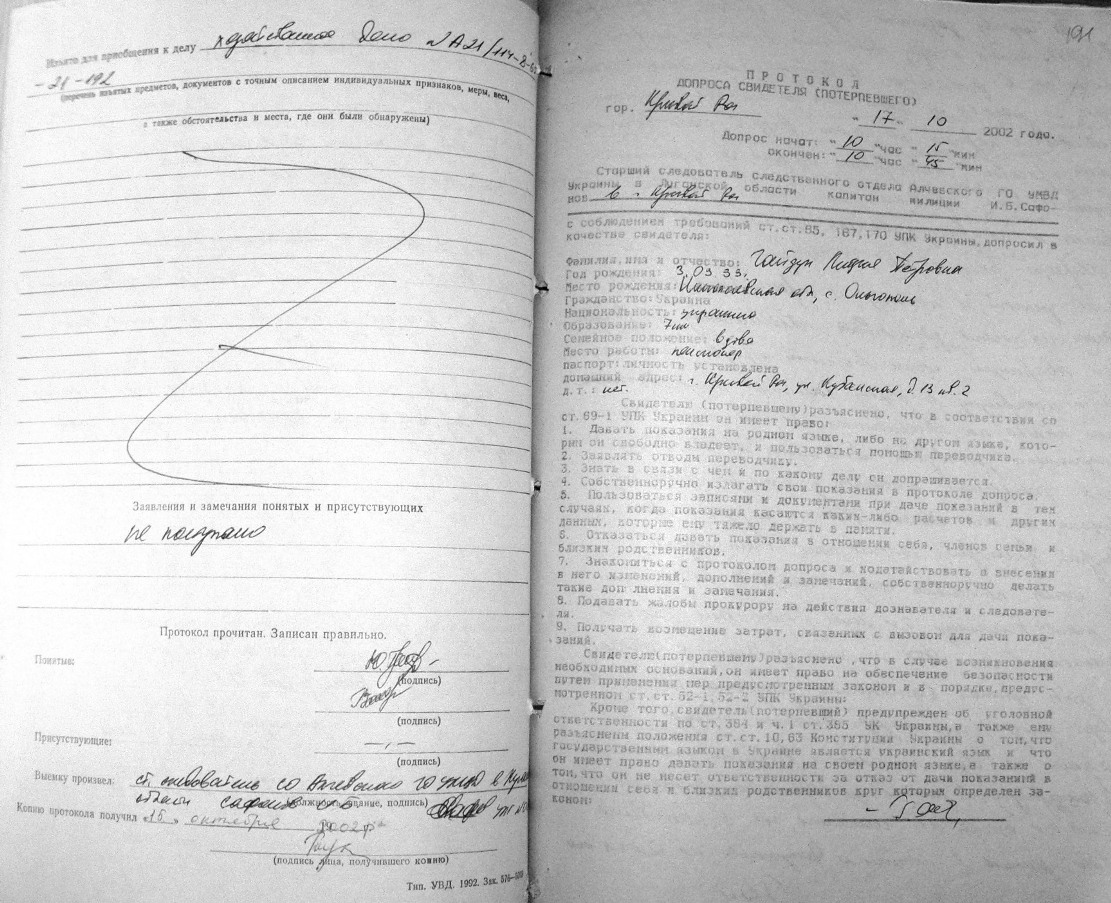 Изъято для приобщения к делу хозяйственное дело № А21/114-8-
-21-192
(перечень изъятых предметов, документов с точным описанием индивидуальных признаков, меры, веса,
а также обстоятельства и места, где они были обнаружены)
Заявления и замечания понятых и присутствующих
не поступило
Протокол прочитан. Записан правильно.
Понятые:
(подпись)
(подпись)
Присутствующие: -,-
(подпись)
Выемку произвел: ст. следователь СО Алчевского ГО УМВД в
области Сафонов
(должность, звание, подпись)
Копию протокола получил 15 октября 2002 г.
(подпись лица, получившего копию)
Тип. УВД. 1992. Зак. 576—
191
ПРОТОКОЛ
ДОПРОСА СВИДЕТЕЛЯ (ПОТЕРПЕВШЕГО)
гор. Кривой Рог "17" 10 2002 года.
Допрос начат: "10" час "15" мин
окончен: "10" час "45" мин
Старший следователь следственного отдела Алчевского ГО УМВД
Украины в Луганской области капитан милиции И.Б.Сафо-
нов в г. Кривой Рог
с соблюдением требований ст.ст.85, 167,170 УПК Украины,допросил в
качестве свидетеля:
Фамилия,имя и отчество: Гайдук Мария Петровна
Год рождения: 3.09.33.
Место рождения: Николаевская обл, с. Ольгополь
Гражданство: Украина
Национальность: украинка
Образование: 7кл
Семейное положение: вдова
Место работы: пенсионер
паспорт: личность установлена
домашний адрес: г. Кривой Рог, ул. Кубанская, д. 13 кв. 2
д.т.: нет.
Свидетелю (потерпевшему)разъяснено, что в соответствии со
ст.69-1 УПК Украины он имеет право:
1. Давать показания на родном языке, либо на другом языке, кото-
рым он свободно владеет, и пользоваться помощью переводчика.
2. Заявлять отводы переводчику.
3. Знать в связи с чем и по какому делу он допрашивается.
4. Собственноручно излагать свои показания в протоколе допроса.
5. Пользоваться записями и документами при даче показаний в тех
случаях, когда показания касаются каких-либо расчетов и других
данных, которые ему тяжело держать в памяти.
6. Отказаться давать показания в отношении себя, членов семьи и
близких родственников.
7. Знакомиться с протоколом допроса и ходатайствовать о внесении
в него изменений, дополнений и замечаний, собственноручно делать
такие дополнения и замечания.
8. Подавать жалобы прокурору на действия дознавателя и следовате-
ля.
9. Получать возмещение затрат, связанных с вызовом для дачи пока-
заний.
Свидетелю(потерпевшему)разъяснено ,что в случае возникновения
необходимых оснований,он имеет право на обеспечение безопасности
путем применения мер предусмотренных законом и в порядке,предус-
мотренном ст.ст.52-1,52-2 УПК Украины:
Кроме того,свидетель(потерпевший) предупрежден об уголовной
ответственности по ст.384 и ч.1 ст.385 УК Украины,а также ему
разъяснены положения ст.ст.10,63 Конституции Украины о том,что
государственным языком в Украине является украинский язык и что
он имеет право давать показания на своем родном языке,а также о
том,что он не несет ответственности за отказ от дачи показаний в
отношении себя и близких родственников круг которых определен за-
коном: